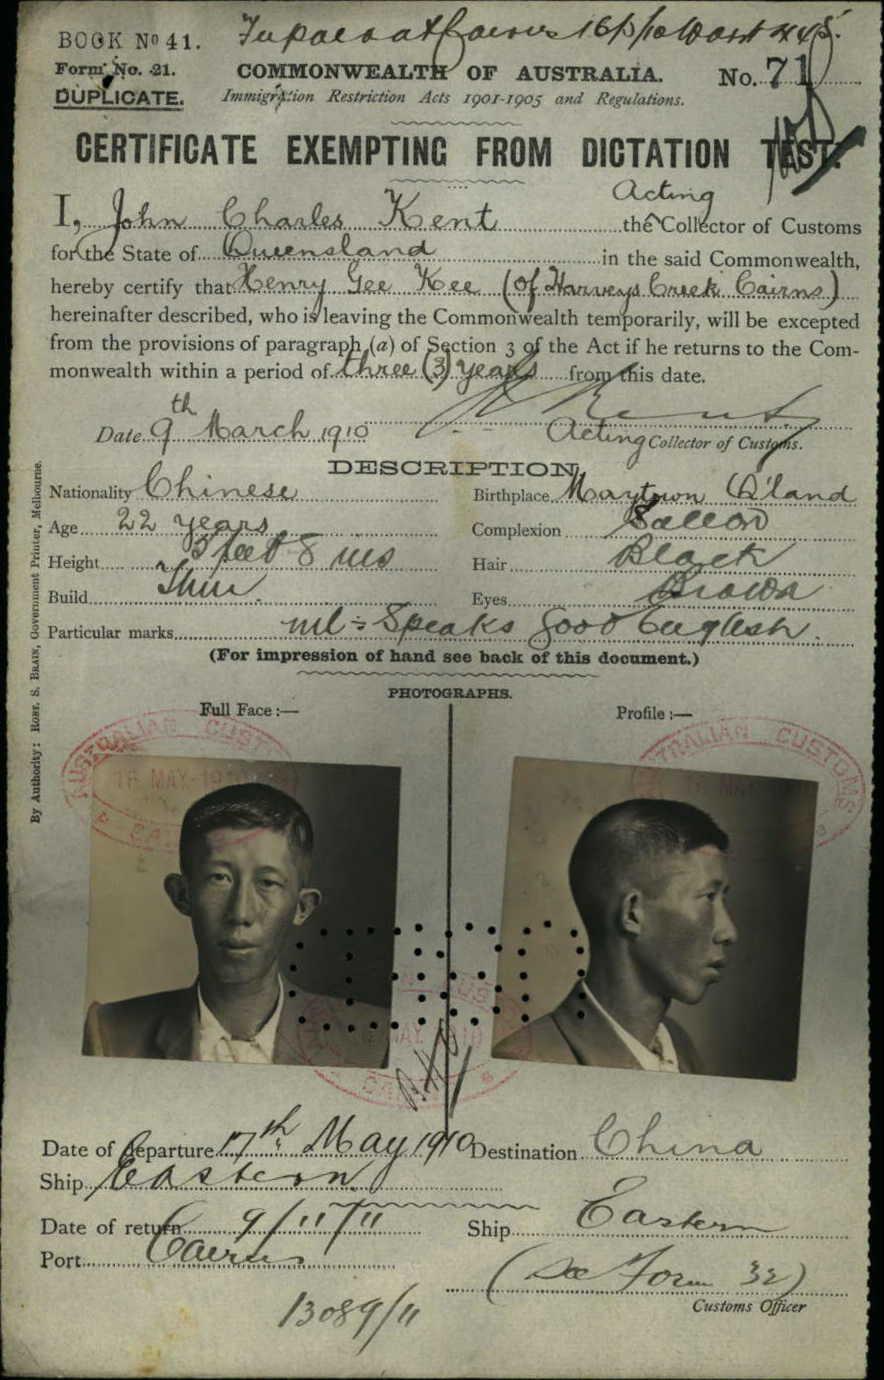 BOOK No 41.
Form No. 21.
DUPLICATE.
COMMONWEALTH OF AUSTRALIA.
Immigration Restriction Acts 1901-1905 and Regulations.
No. 71
CERTIFICATE EXEMPTING FROM DICTATION TEST.
I, John Charles Kent the Acting Collector of Customs
for the State of Queensland in the said Commonwealth,
hereby certify that Henry Gee Kee (of Harveys Creek Cairns)
hereinafter described, who is leaving the Commonwealth temporarily, will be excepted
from the provisions of paragraph (a) of Section 3 of the Act if he returns to the Com-
monwealth within a period of three (3) years from this date.
Date 9th March 1910
Acting Collector of Customs.
DESCRIPTION
Nationality Chinese
Birthplace Maytown Q'land
Age 22 years
Complexion Sallow
Height 5 feet 8 ins
Hair Black
Build Thin
Eyes Brown
Particular marks nil - Speaks good English.
(For impression of hand see back of this document.)
PHOTOGRAPHS.
Full Face :—
Profile :—
By Authority: ROBT. S. BRAIN, Government Printer, Melbourne.
AUSTRALIAN CUSTOMS
16 MAY 1910
AUSTRALIAN CUSTOMS
Date of departure 17th May 1910
Destination China
Ship Eastern
Date of return 9/11/11
Ship Eastern
Port Cairns
(See Form 32)
Customs Officer
13089/11